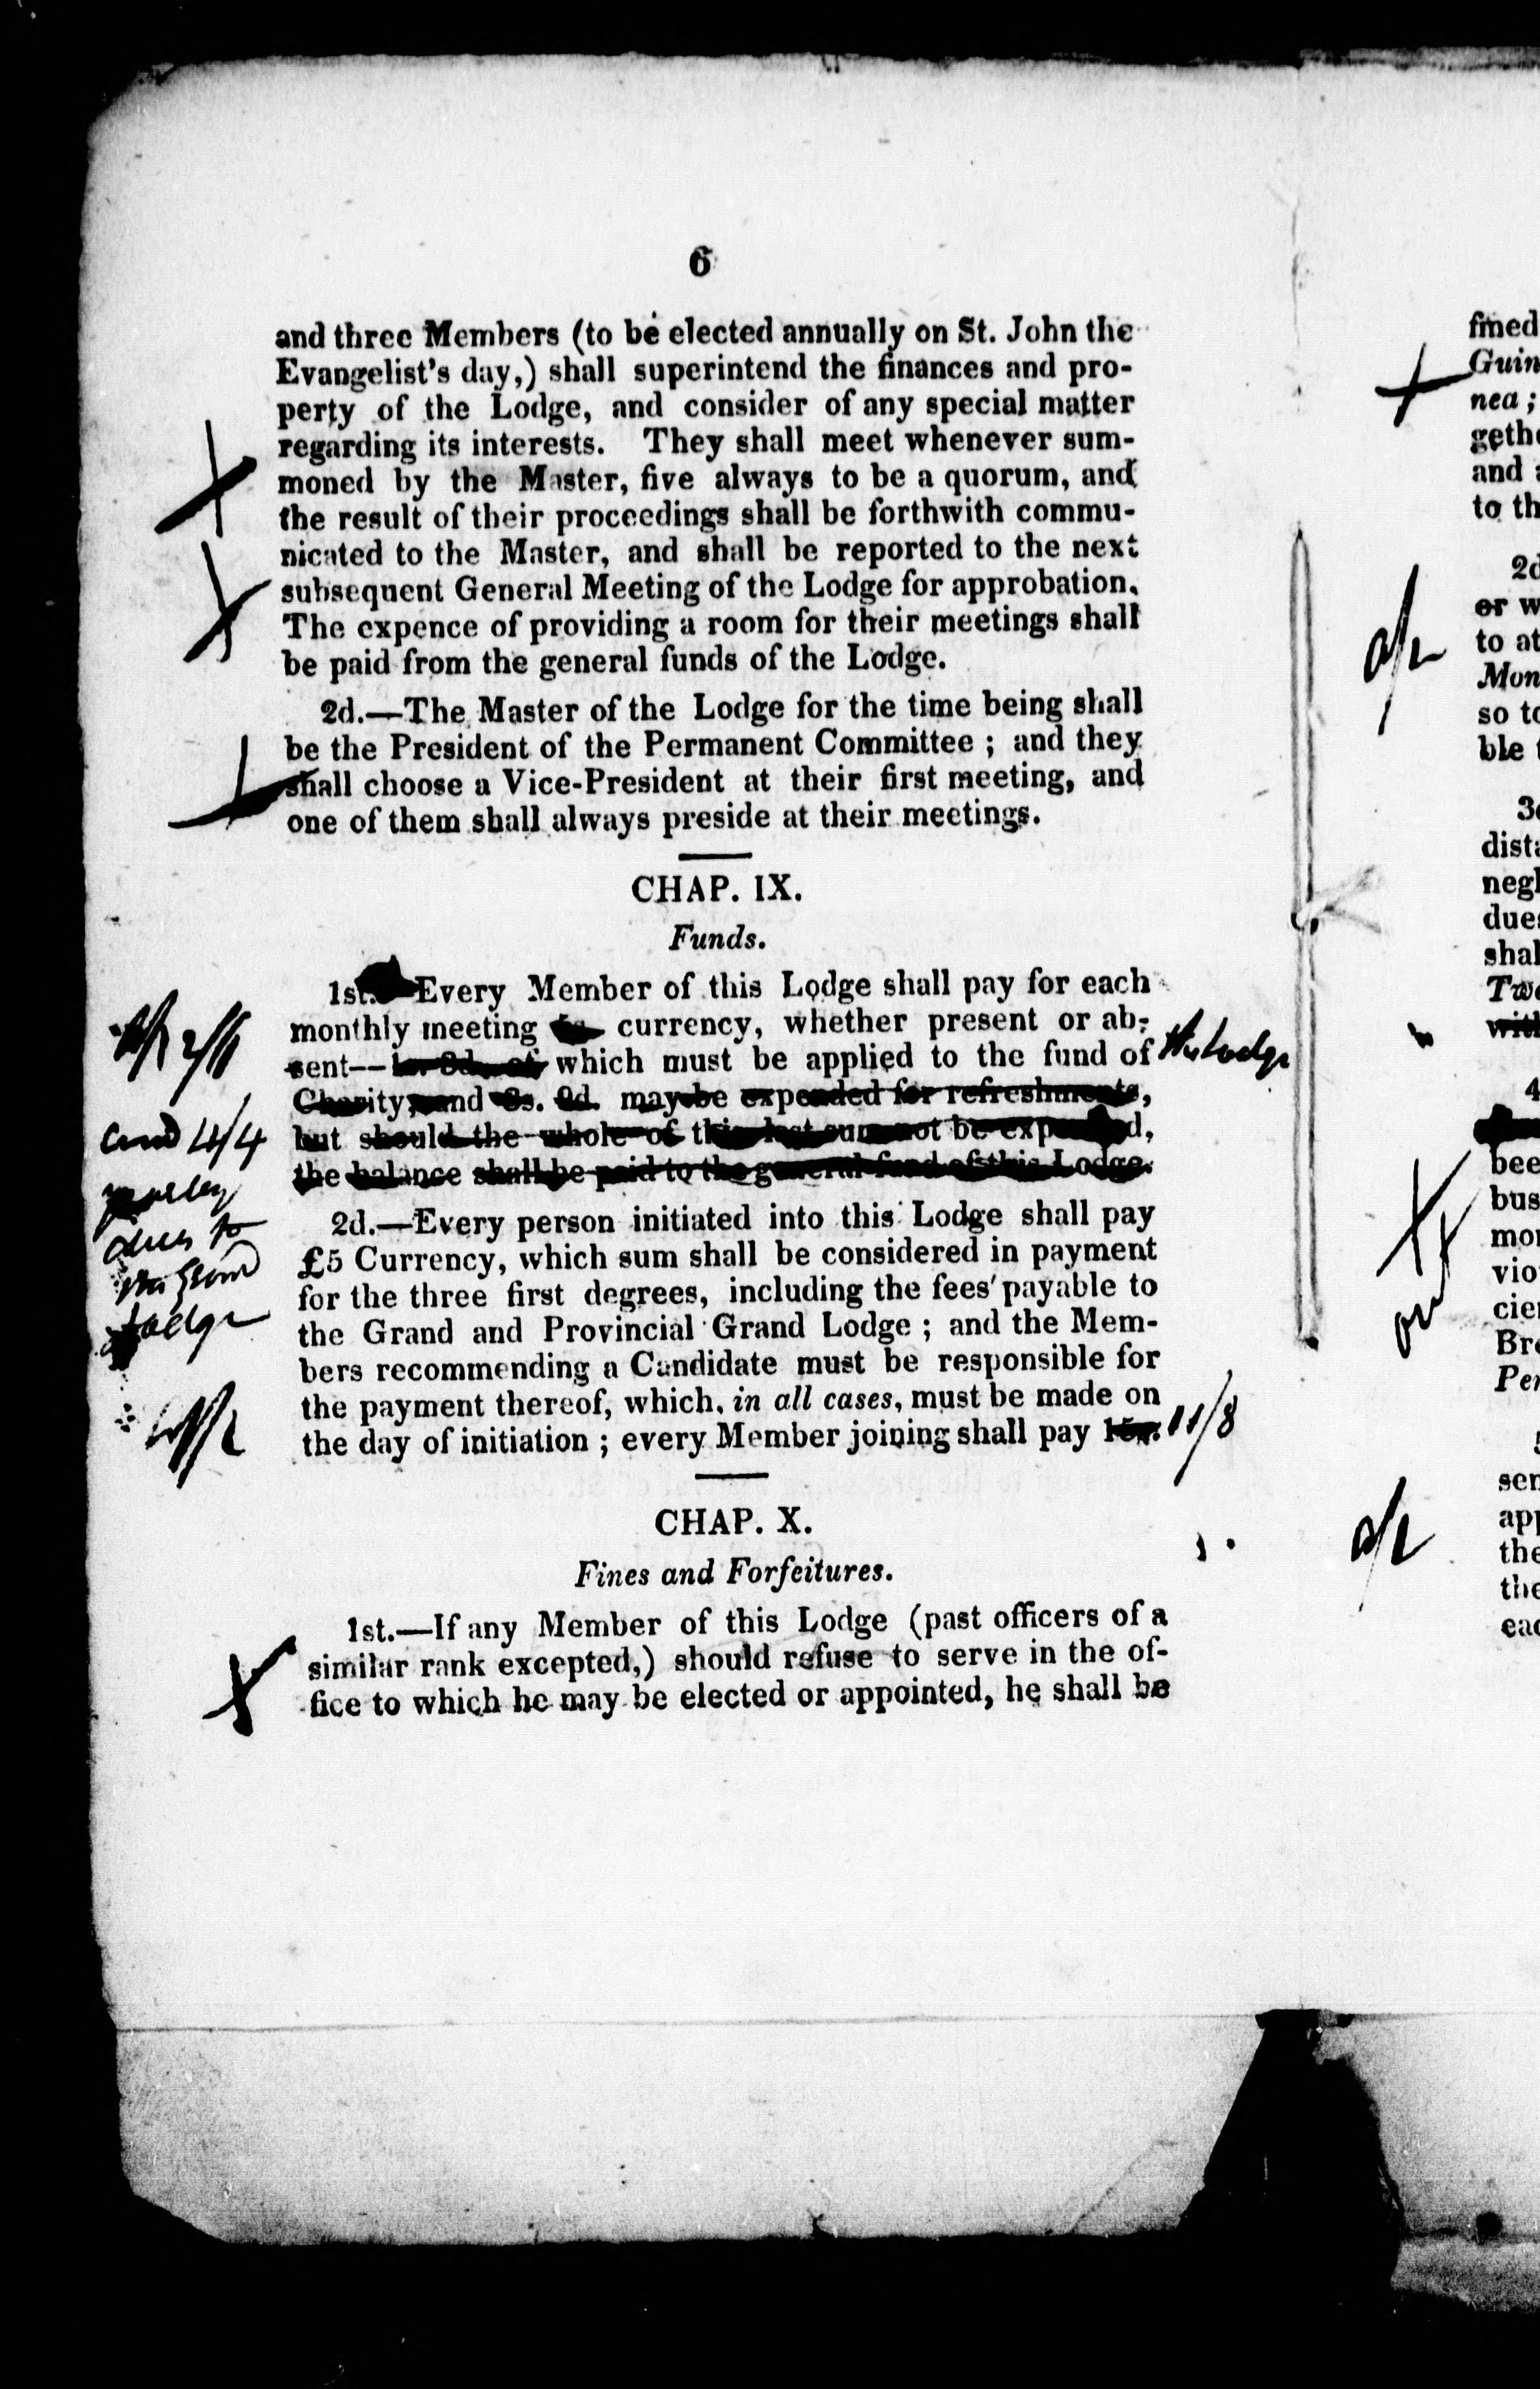 6
and three Members (to be elected annually on St. John the
Evangelist's day,) shall superintend the finances and pro-
perty of the Lodge, and consider of any special matter
regarding its interests. They shall meet whenever sum-
moned by the Master, five always to be a quorum, and
the result of their proceedings shall be forthwith commu-
nicated to the Master, and shall be reported to the next
subsequent General Meeting of the Lodge for approbation.
The expence of providing a room for their meetings shall
be paid from the general funds of the Lodge.
2d.—The Master of the Lodge for the time being shall
be the President of the Permanent Committee ; and they
shall choose a Vice-President at their first meeting, and
one of them shall always preside at their meetings.
CHAP. IX.
Funds.
1st.—Every Member of this Lodge shall pay for each
monthly meeting currency, whether present or ab-
sent-- which must be applied to the fund of the Lodge
Charity, and 3s. 9d. may be expended for refreshments,
but should the whole of this last sum not be expended,
the balance shall be paid to the general fund of this Lodge.
2/6
and 4/4
yearley
dues to
the Grand
Lodge
2d.—Every person initiated into this Lodge shall pay
£5 Currency, which sum shall be considered in payment
for the three first degrees, including the fees payable to
the Grand and Provincial Grand Lodge ; and the Mem-
bers recommending a Candidate must be responsible for
the payment thereof, which, in all cases, must be made on
the day of initiation ; every Member joining shall pay 11/8
CHAP. X.
Fines and Forfeitures.
1st.—If any Member of this Lodge (past officers of a
similar rank excepted,) should refuse to serve in the of-
fice to which he may be elected or appointed, he shall be
fined
Guin
nea ;
geth
and
to th
2d
or w
to at
Mon
so to
ble
3d
dist
negl
dues
shal
Tw
with
4
bee
bus
mo
vio
cie
Bre
Per
out
5
ser
app
the
the
eac